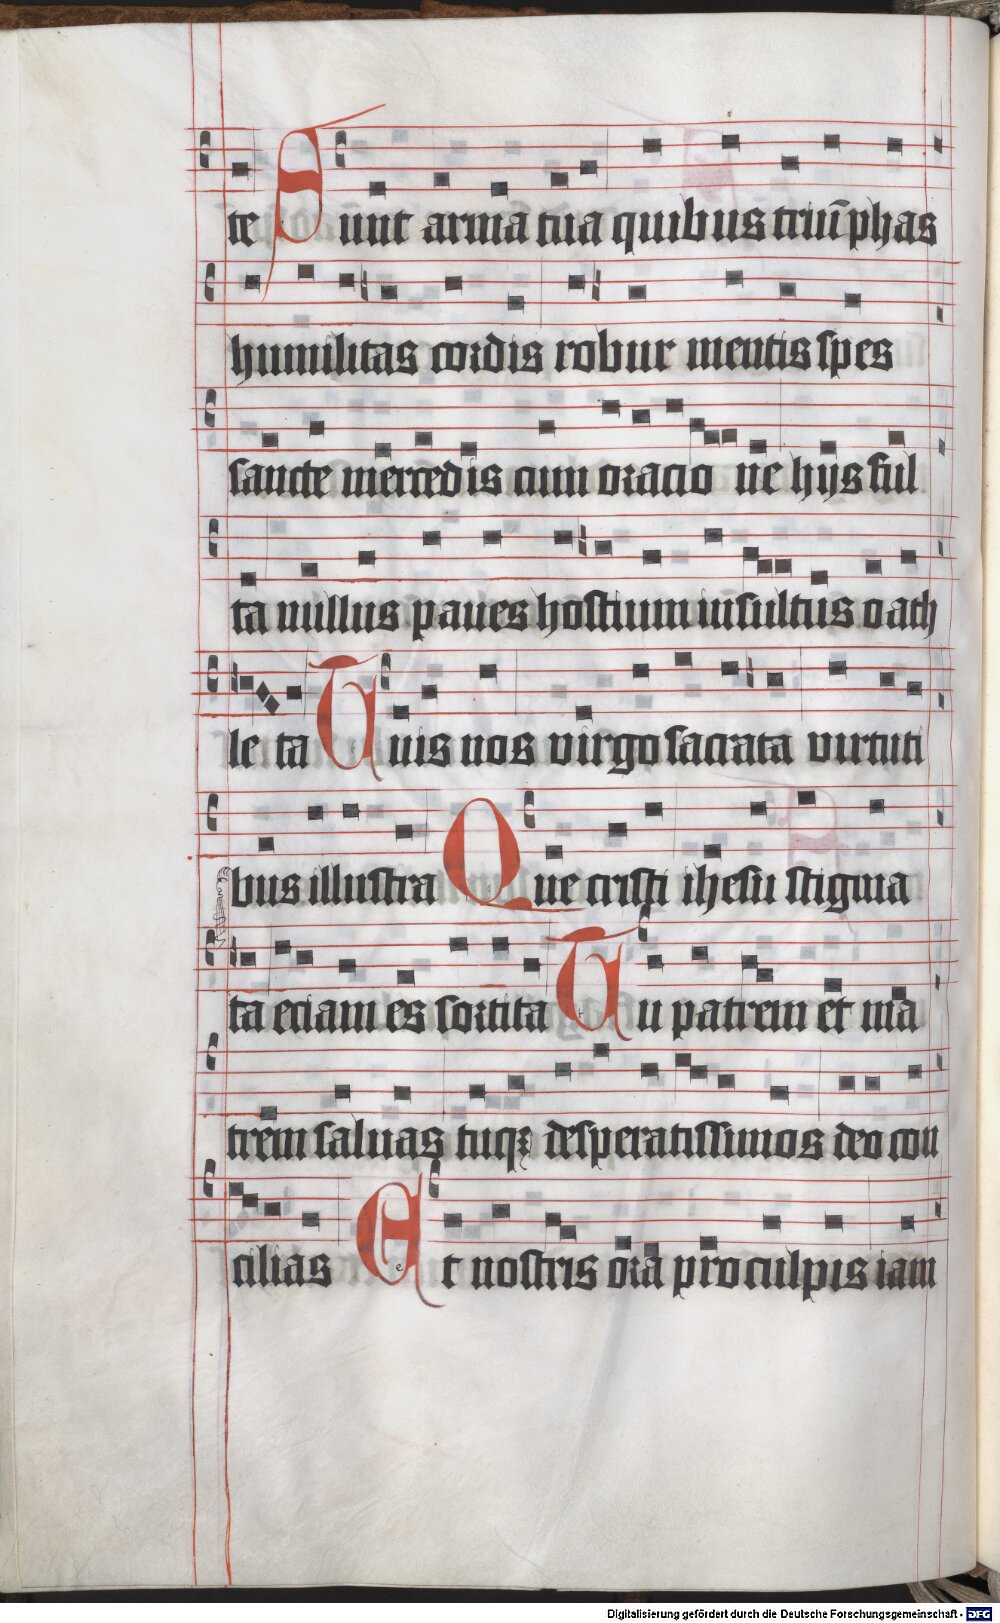 te Sunt arma tua quibus triūphas
humilitas cordis robur mentis spes
sancte mercedis cum oracio ne hijs ful
ta nullus paues hostium insultus o ath
le ta Tuis nos virgo sacrata virtuti
bus illustra Que cristi ihesu stigma
ta eciam es sortita Tu patrem et ma
trem saluas tuqꝫ desperatissimos deo con
cilias Et nostris ora pro culpis iam
Digitalisierung gefördert durch die Deutsche Forschungsgemeinschaft - DFG